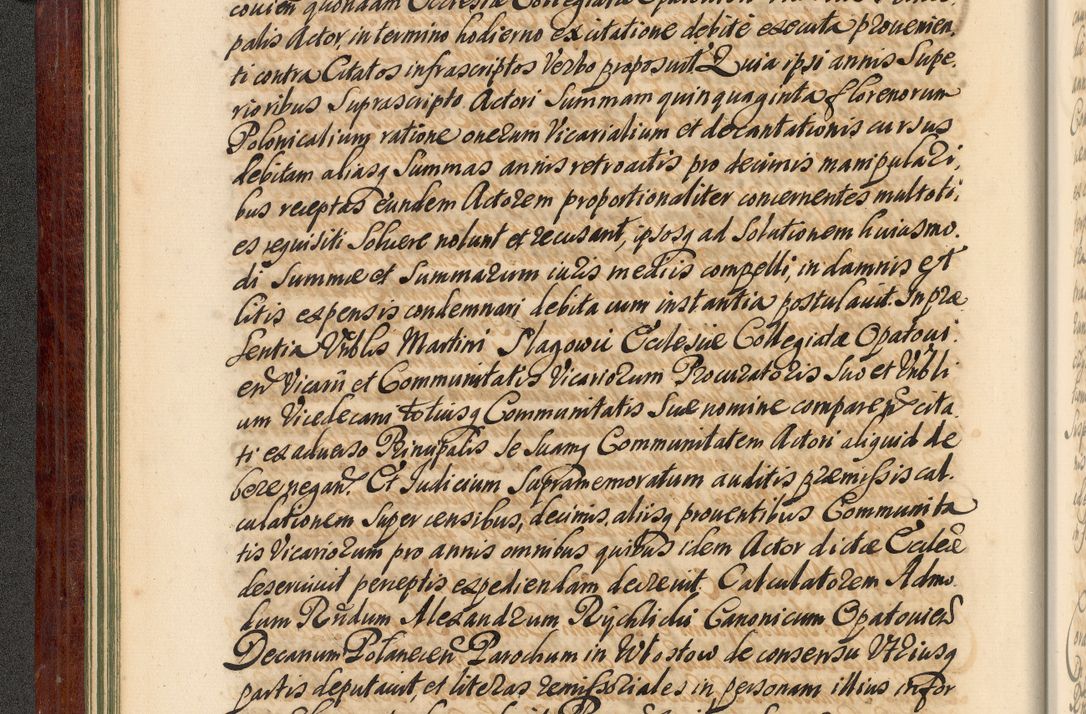 covien̄ quondam Ecclesiæ Collegiatæ Opatovien
palis Actor, in termino hodierno ex citatione debite executa provenien,
ti contra Citatos infrascriptos Verbo proposuit Quia ipsi annis Supe,
rioribus Suprascripto Actori Summam quinquaginta florenorum
Polonicalium ratione onerum Vicarialium et decantationis cursus
debitam aliasq Summas annis retroactis pro decimis manipulari,
bus receptas eundem Actorem proportionaliter concernentes multoti,
es requisiti Solvere nolunt et recusant, ipsosq ad Solutionem huiusmo,
di Summæ et Summarum iuris mediis compelli, in damnis et
litis expensis condemnari debita cum instantia postulavit. In præ
sentia Vnblis Martini Slagowii Eccl̄esiæ Collegiatæ Opatovi,
en̄ Vicarii et Communitatis Vicariorum Procuratoris Suo et Vnbli
um Vicedecani totiusq Communitatis Suæ nomine comparen̄ cita
ti ex adverso Principalis Se Suamq Communitatem Actori aliquid de
bere negan̄. Et Iudicium Supramemoratum auditis præmissis cal,
culationem Super censibus, decimis, aliisq proventibus Communita
tis Vicariorum pro annis omnibus quibus idem Actor dictæ Eccleæ
deservivit perceptis expediendam decrevit. Calculatorem Admo,
dum Rn̄dum Alexandrum Rychlicki Canonicum Opatovien̄
Decanum Polanecen̄ Parochum in Włostow de consensu Vtriusq
partis deputavit, et literas remissoriales in personam illius in for